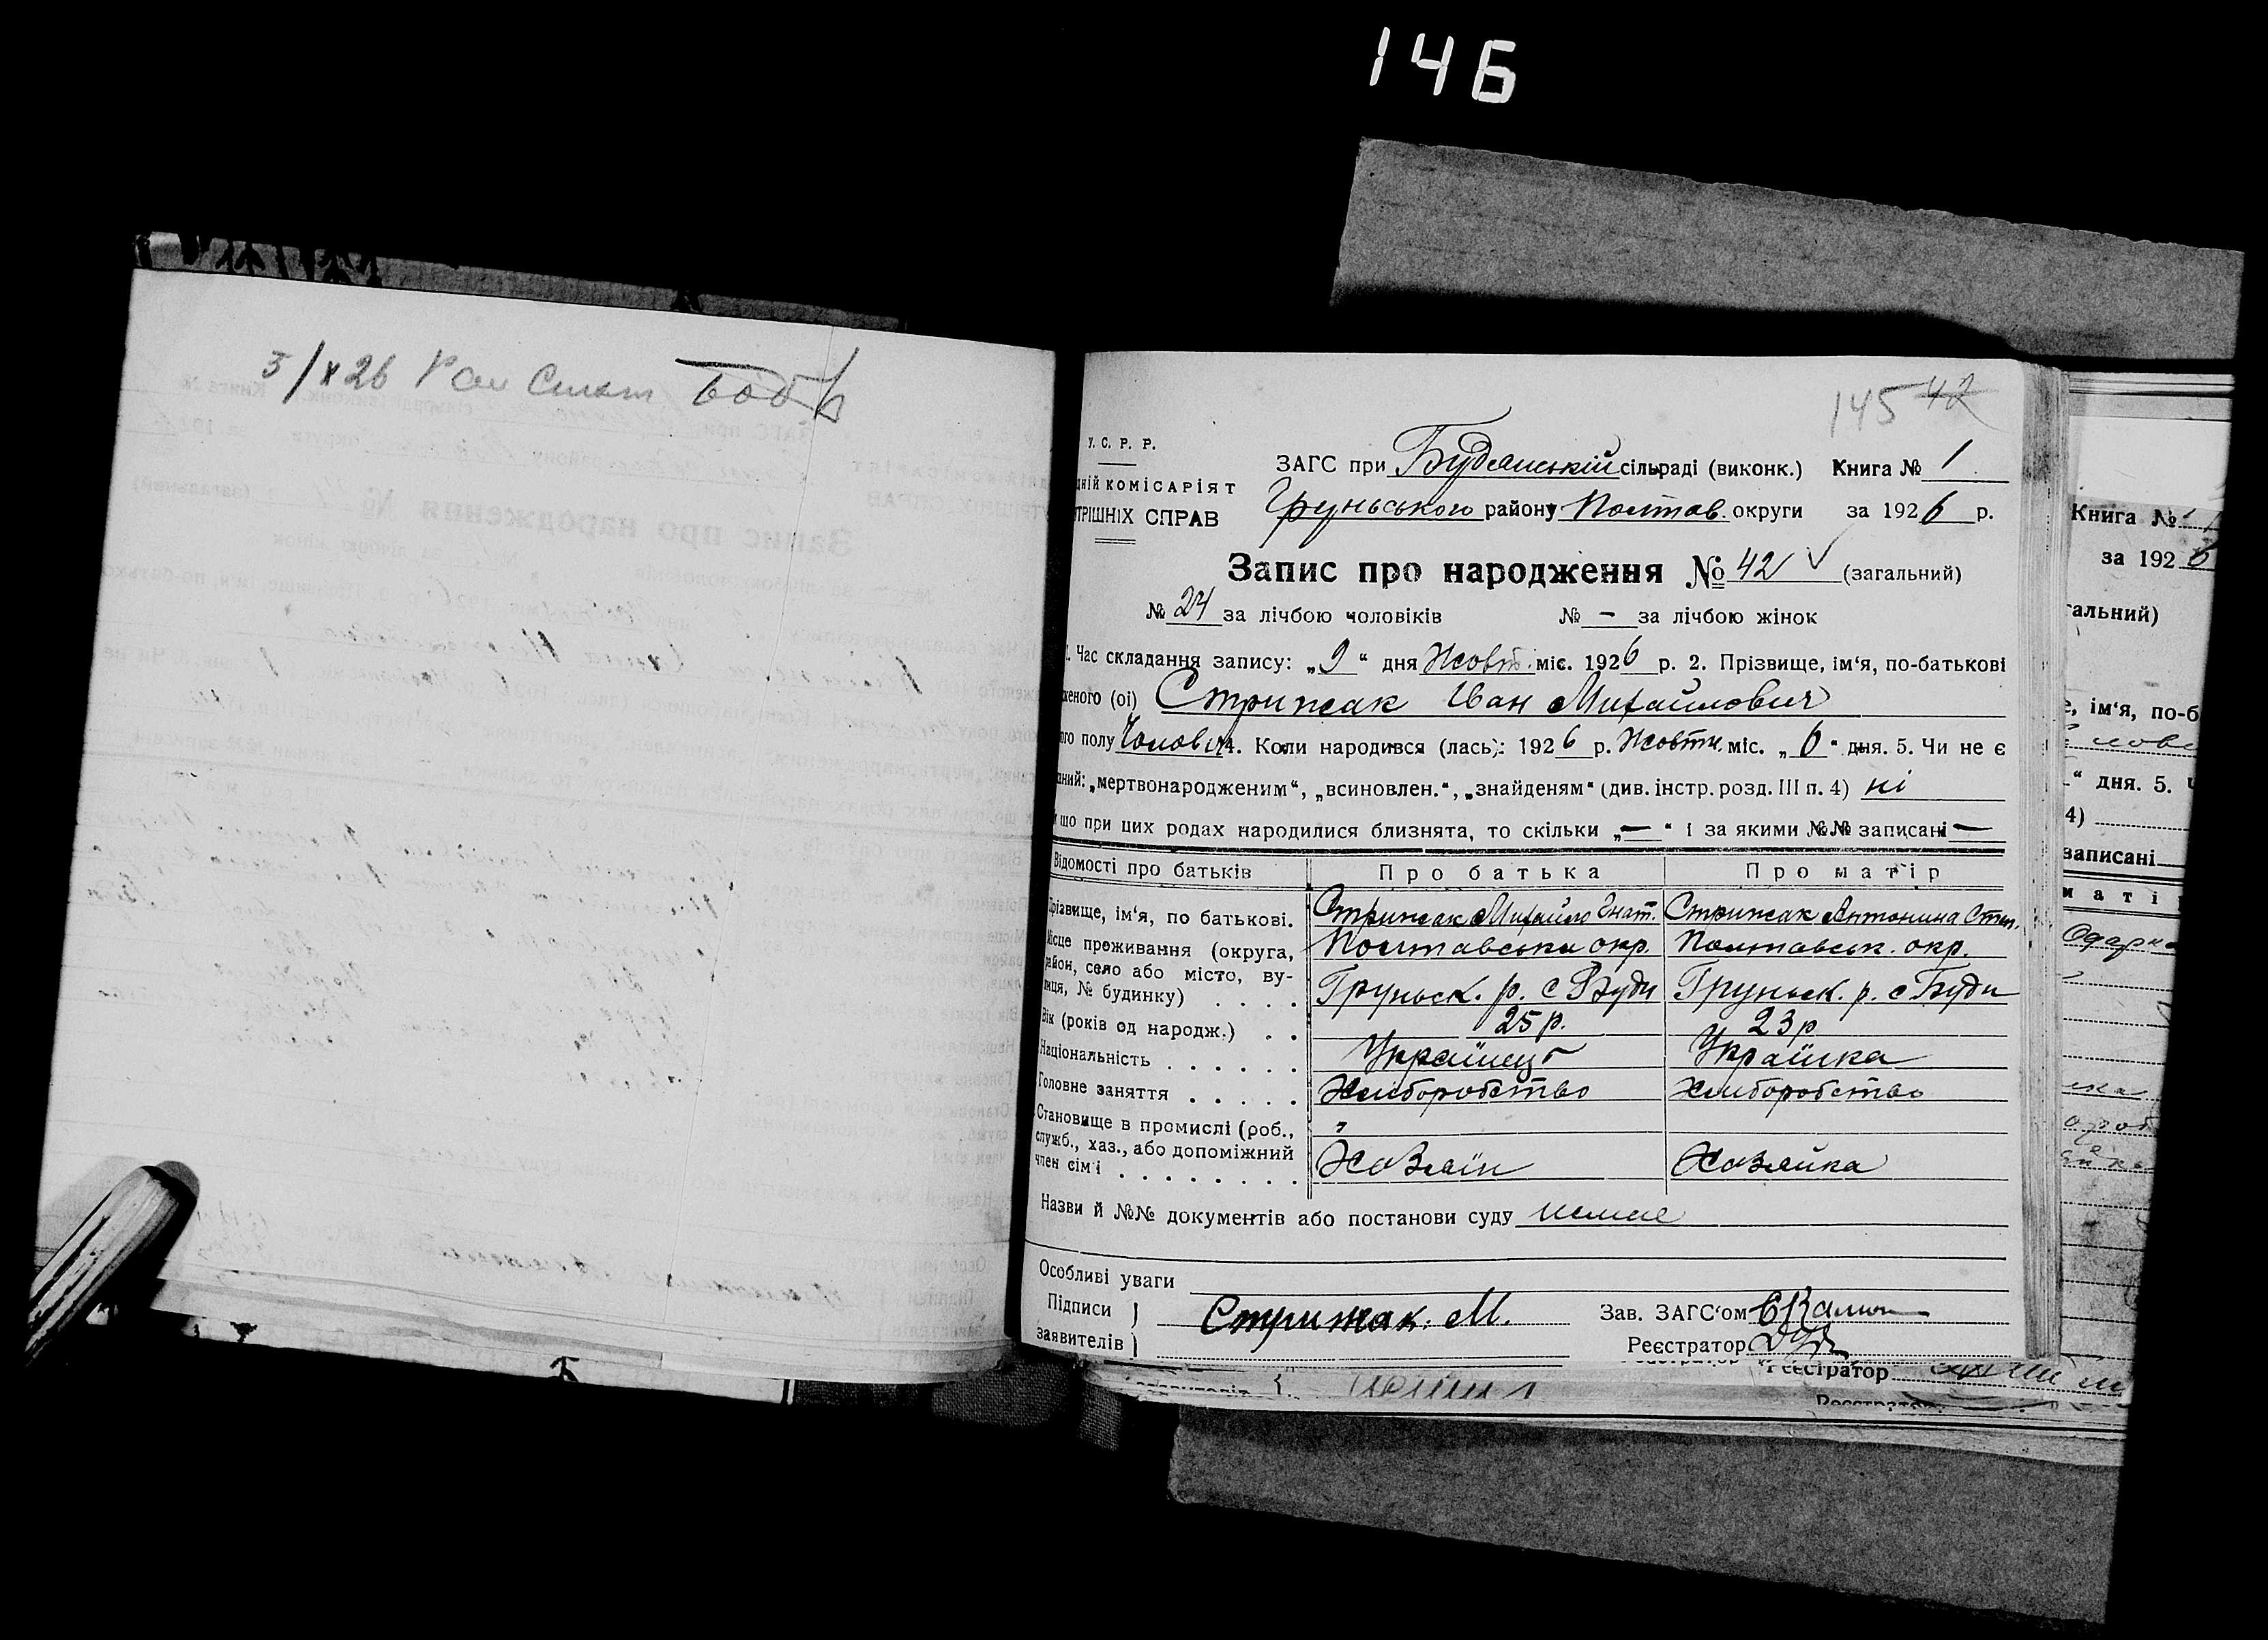 146
3/X 26
145 42
У. С. Р. Р.
ЗАГС при Будянській сільраді (виконк.) Книга № 1
КОМІСАРІЯТ
Груньського району Полтав. округи за 1926 р.
СПРАВ
Запис про народження № 42 (загальний)
№ 24 за лічбою чоловіків № — за лічбою жінок
Час складання запису: „9“ дня Жовт. міс. 1926 р. 2. Прізвище, ім‘я, по-батькові
(ої) Стрижак Іван Михайлович
полу Чолов 4. Коли народився (лась): 1926 р. Жовтн. міс. „6“ дня. 5. Чи не є
„мертвонародженим“, „всиновлен.“, „знайденям“ (див. інстр. розд. III п. 4) ні
що при цих родах народилися близнята, то скільки „—“ і за якими №№ записані —
Відомості про батьків Про батька Про матір
Прізвище, ім‘я, по батькові. Стрижак Михайло Гнат. Стрижак Антонина Степ.
Місце проживання (округа, Полтавська окр. Полтавськ. окр.
район, село або місто, ву-
лиця, № будинку) . . . . Груньск. р. с Буди Груньск. р. с Буди
Вік (років од народж.) . . 25 р. 23 р
Національність . . . . . . Українець Українка
Головне заняття . . . . . Хліборобство Хліборобство
Становище в промислі (роб., „
служб., хаз., або допоміжний Хозяїн Хозяйка
член сім‘ї . . . . . . . .
Назви й №№ документів або постанови суду немає
Особливі уваги
Підписи Стрижак. М. Зав. ЗАГС‘ом
заявителів Реєстратор
Книга №
за 1926
альний)
ім‘я, по-б
“ дня. 5. Ч
4)
записані
маті
Одарка
Реєстратор